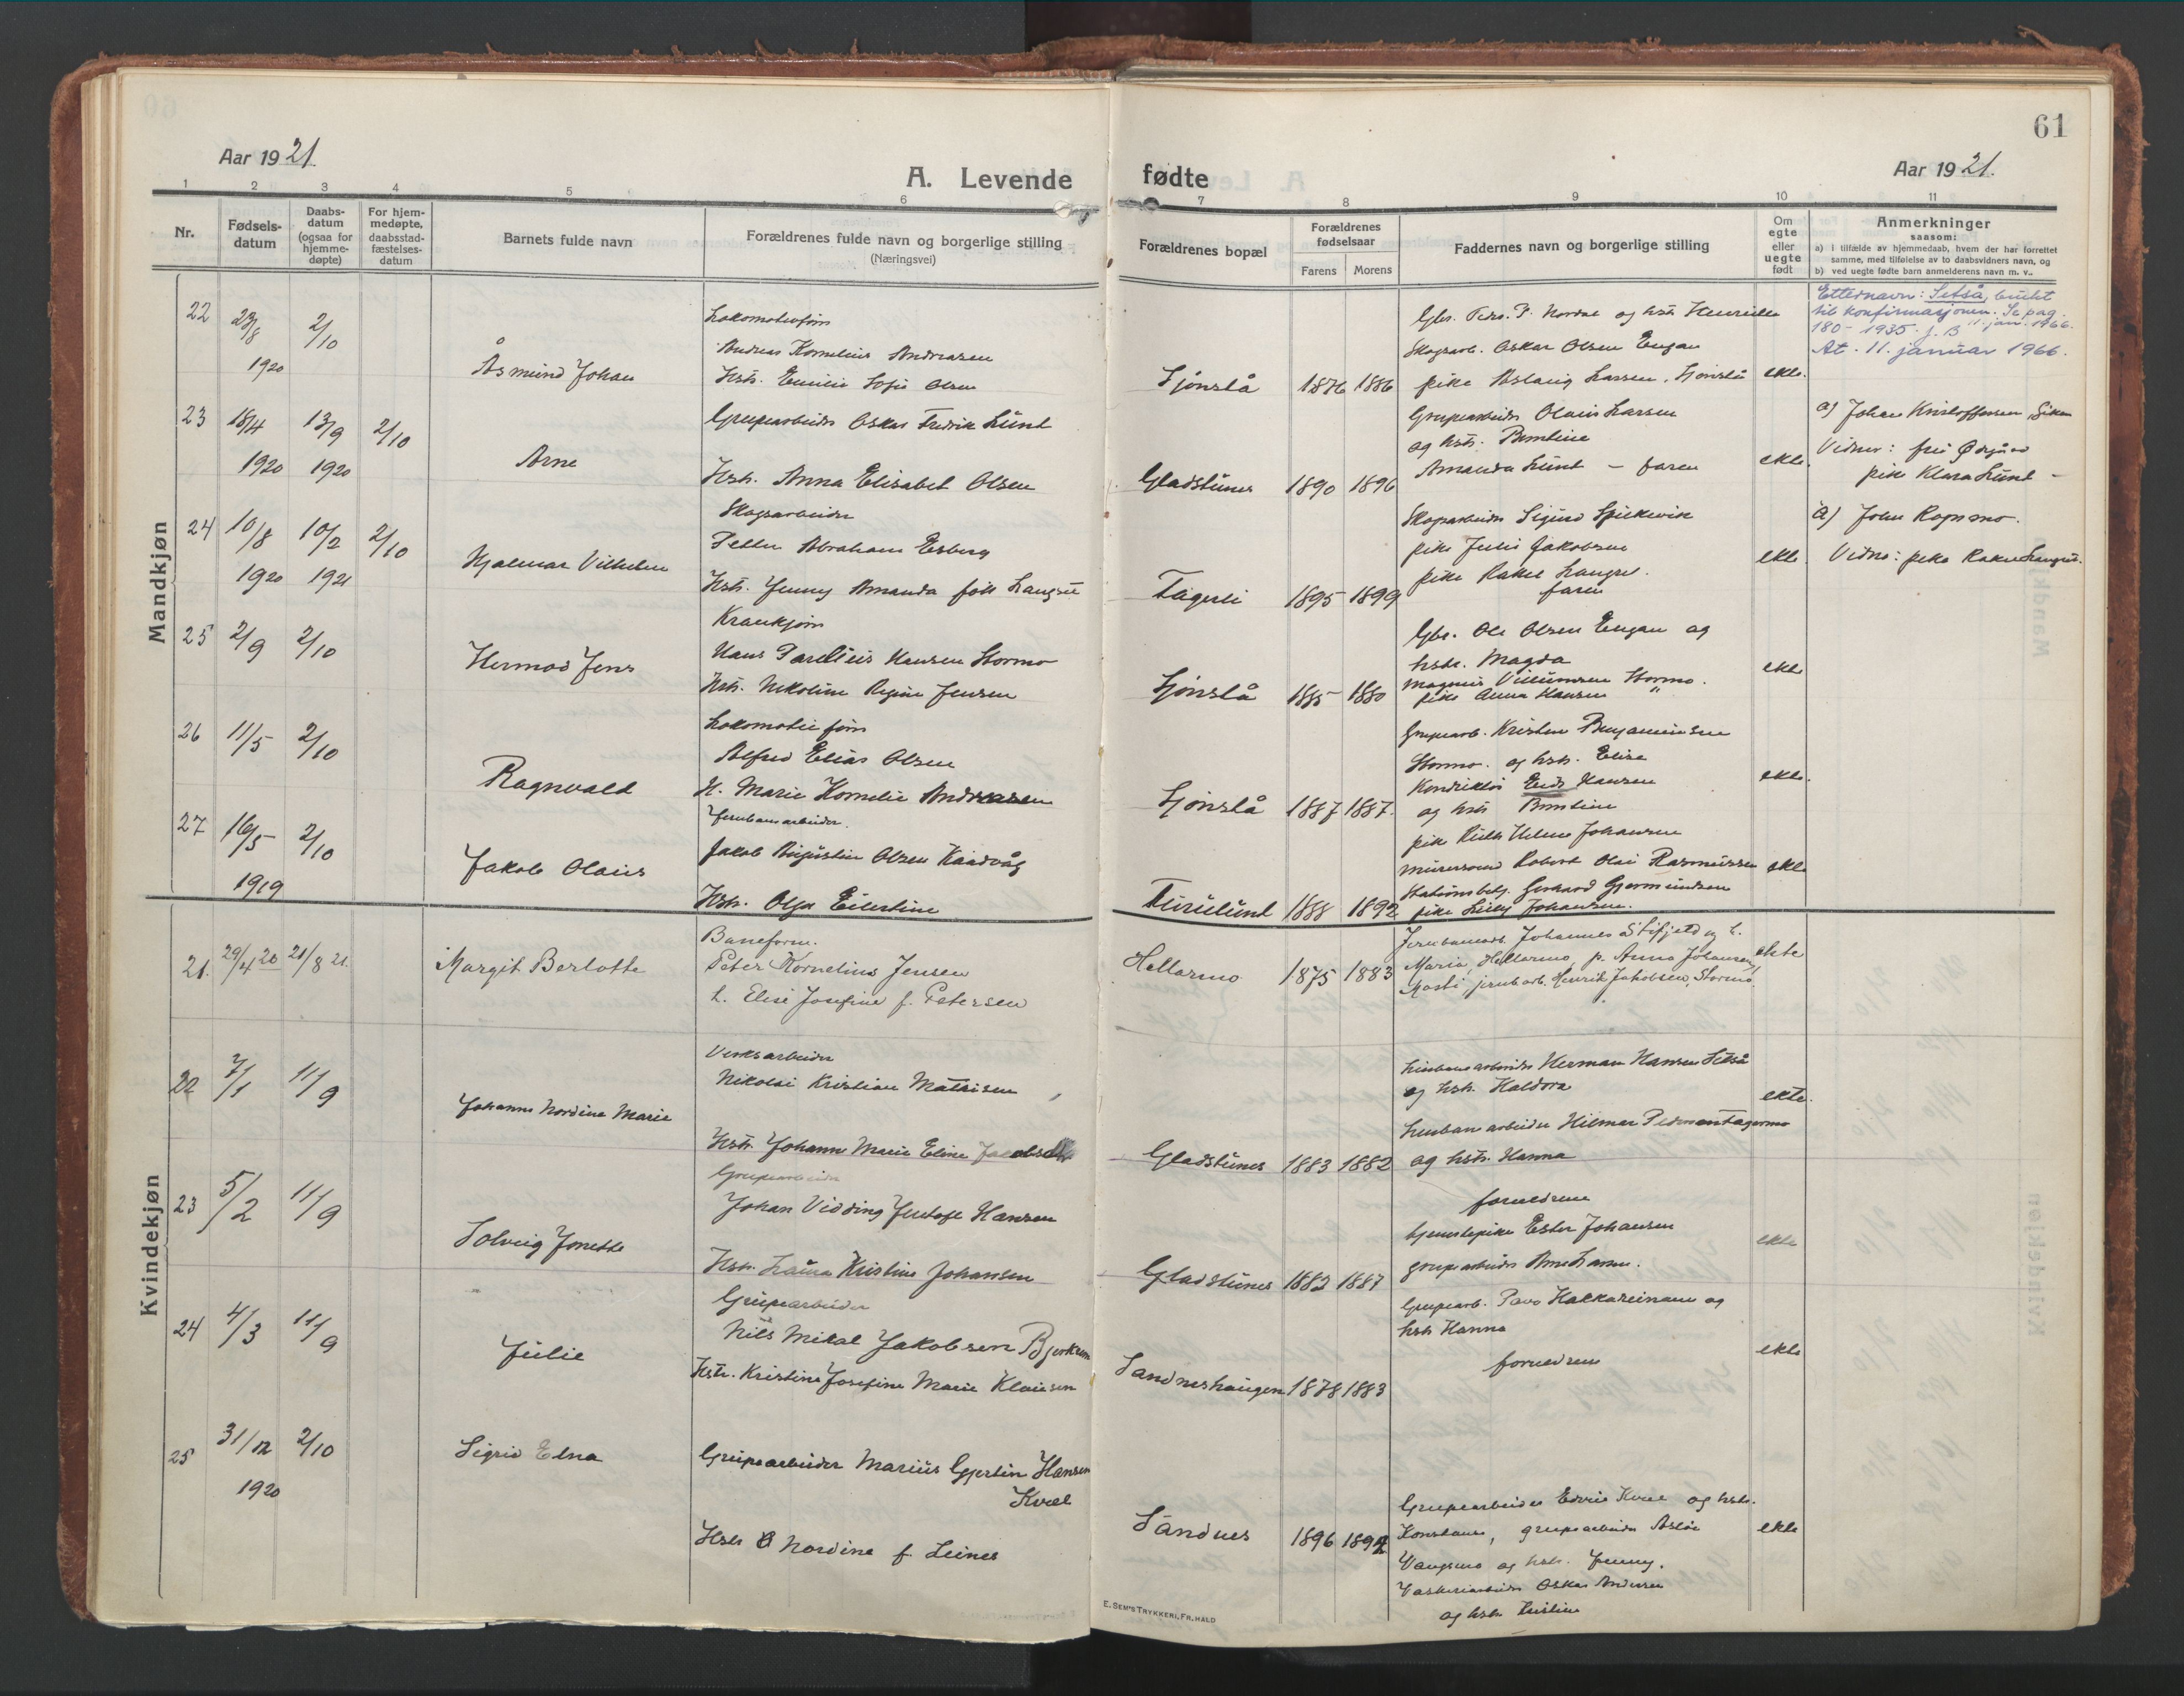 61
Aar 1921.
A. Levende fødte
Aar 1921.
1 2 3 4 5 6 7 8 9 10 11
Nr.
Fødsels-datum
Daabs-datum (ogsaa for hjemme-døpte)
For hjem-medøpte, daabsstad-fæstelses-datum
Barnets fulde navn
Forældrenes fulde navn og borgerlige stilling
(Næringsvei)
Forældrenes bopæl
Forældrenes fødselsaar
Farens Morens
Faddernes navn og borgerlige stilling
Om egte eller uegte født
Anmerkninger
saasom:
a) i tilfælde av hjemmedaab, hvem der har forrettet
samme, med tilføielse av to daabsvidners navn, og
b) ved uegte fødte barn anmelderens navn m. v..
Mandkjøn
22 23/8 1920 2/10
Åsmund Johan
Lokomotivform
Andreas Kornelius Andreasen
Hstr. Emilie Sofie Olsen
Sjönstå 1876 1886
Gbr. Peder P. Nordal og hstr. Henrikke
Skogsarb. Oskar Olsen Engan
pike Aslaug Larsen, Sjönstå
ekte.
Etternavn: Setså, brukt
til konfirmasjonen. Se pag.
180 - 1935. J. B 11. jan. 1966.
At. 11. januar 1966.
23 18/4 1920 13/9 1920 2/10
Arne
Grupearbeider Oskar Fredrik Lund
Hstr. Anna Elisabet Olsen
Gladstunes 1890 1896
Grupearbeider Olaus Larsen
og hstr. Berntine
Amanda Lund - faren
ekte.
a) Johan Kristoffersen
Vidner: fru
pike Klara Lund -
24 10/8 1920 10/2 1921 2/10
Hjalmar Vilhelm
Skogsarbeider
Petter Abraham Esberg
Hstr. Jenny Amanda
Fagerli 1895 1899
Skogsarbeider Sigurd
pike Julie Jakobsen
pike Rakel
faren
ekte.
a) John Rognmo.
Vidne: pike Rakel
25 2/9 2/10
Hermod Jens
Krankjører
Hans Parelius Hansen Stormo
Hstr. Nikoline Regine Jensen
Sjönstå 1885 1880
Gbr. Ole Olsen Engan og
hstr. Magda
Magnus Villumsen Stormo.
pike Anna Hansen "
ekte
26 11/5 2/10
Ragnvald
Lokomotivform
Alfred Elias Olsen
H. Marie Kornelie Andreasen
Sjönstå 1887 1887.
Grupearb. Kristen Benjaminsen
Stormo. og hstr. Elise
Hansen
og hstr Berntine
ekte.
27 16/5 1919 2/10
Jakob Olaus
Jernbanearbeider.
Jakob Augustin Olsen Kaadvåg
Hstr. Olga Eilertine
Furulund 1888 1892
pike Helene Johansen
murersvend Robert Olai Rasmussen
Stationsbetj. Gerhard Gjermundsen
pike Lilly Johansen.
ekte
Kvindekjøn
21. 29/4 20 21/8 21.
Margit Berlotte
Baneform.
Peter Kornelius Jensen
h. Elise Josefine f. Petersen
Hellarmo 1875 1883
Jernbanearb. Johannes Stifjeld og h.
Maria, Hellarmo, p. Anna Johansen,
jernb.arb. Henrik Jakobsen, Stormo.
ekte
22 7/1 11/9
Johanne Nordine Marie
Verksarbeider
Nikolai Kristian Mathisen
Hstr. Johann Marie Eline Jacobsen
Gladstunes 1883 1882
Linebanearbeider Herman Hansen Setså
og hstr. Haldora
Linebanearbeider Hilmar Pedersen Fagermo
og hstr. Hanna
ekte.
23 5/2 11/9
Solveig Jonette
Grupearbeider
Johan Vidding Jentoft Hansen
Hstr. Laura Kristine Johansen
Gladstunes 1882 1887
foreldrene
tjenestepike Ester Johansen
grupearbeider Arne Larsen.
ekte
24 4/3 11/9
Julie
Grupearbeider
Nils Mikal Jakobsen Bjerkmo
Hstr. Kristine Josefine Marie Klausen
Sandneshaugen 1878 1883
Grupearb. Pavo Hakkareinanen og
hstr Hanna
foreldrene
ekte
25 31/12 1920 2/10
Sigrid Elna
Grupearbeider Marius Gjertin Hansen
Kvæl
Hstr Nordine f. Leines
Sandnes 1896 1892
Grupearbeider Edvin Kvæl og hstr.
Konstanse, grupearbeider Aslak
Vangsmo og hstr. Jenny.
Vaskeriarbeider Oskar Andersen
og hstr Kristine
ekte
E. SEM'S TRYKKERI, FR.HALD